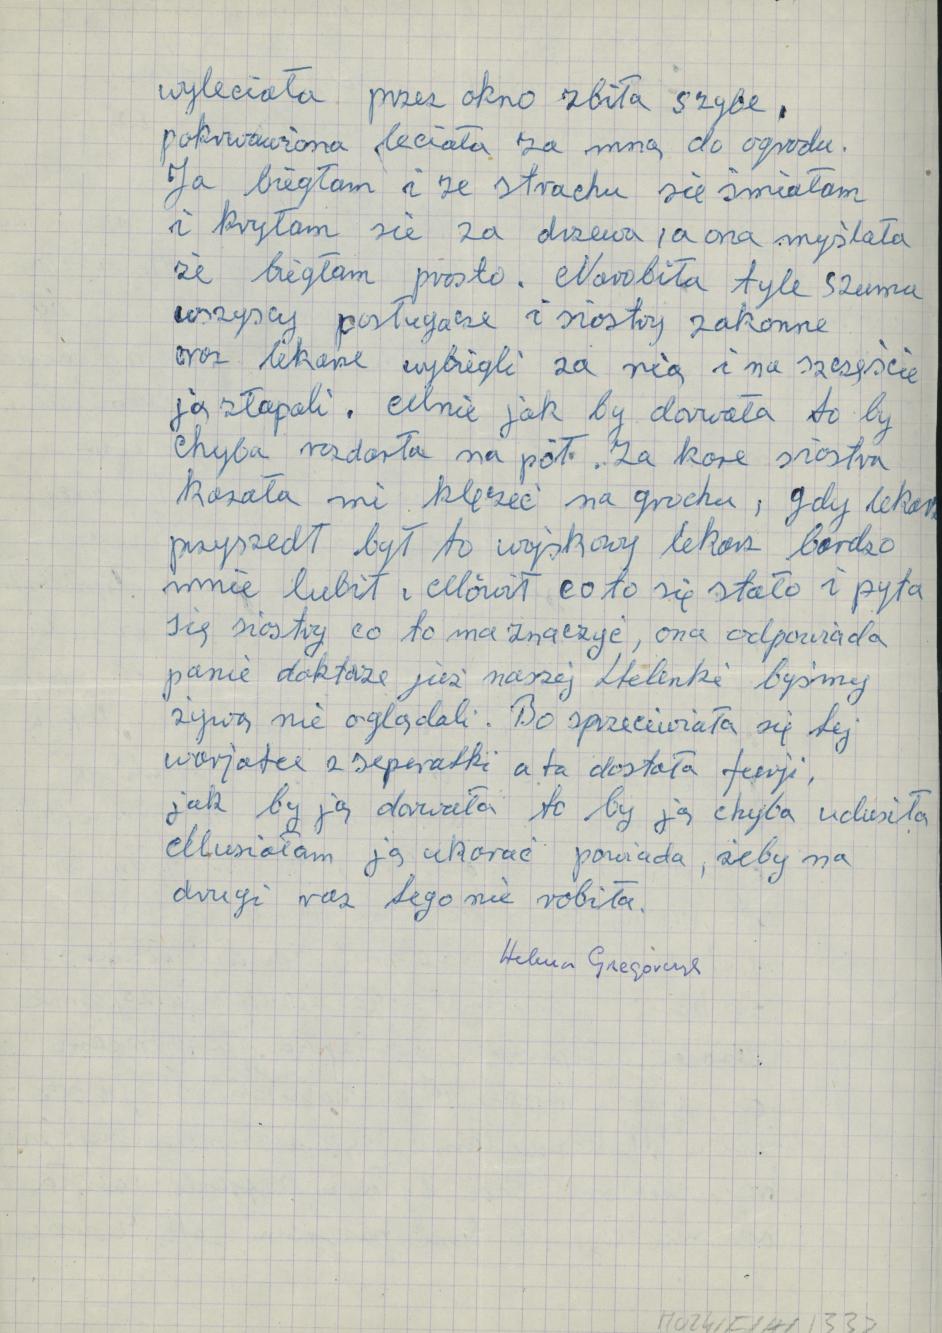 wyleciała przez okno zbiła szybe,
pokrwawiona leciała za mną do ogrodu.
Ja biegłam i ze strachu się śmiałam
i kryłam sie za drzewa, a ona myślała
że biegłam prosto. Narobiła tyle szumu
wszyscy posługacze i siostry zakonne
oraz lekarze wybiegli za nią i na szczęście
ją złapali. Mnie jak by dorwała to by
chyba rozdarła na pół. Za kare siostra
kazała mi klęczeć na grochu, gdy lekarz
przyszedł był to wojskowy lekarz bardzo
mnie lubił. Mówił co to się stało i pyta
się siostry co to ma znaczyć, ona odpowiada
panie doktorze już naszej Helenki byśmy
żywą nie oglądali. Bo sprzeciwiała się tej
warjatce z seperatki a ta dostała furji,
jak by ją dorwała to by ją chyba udusiła
Musiałam ją ukarać powiada, żeby na
drugi raz tego nie robiła.
Helena Grzegorczyk